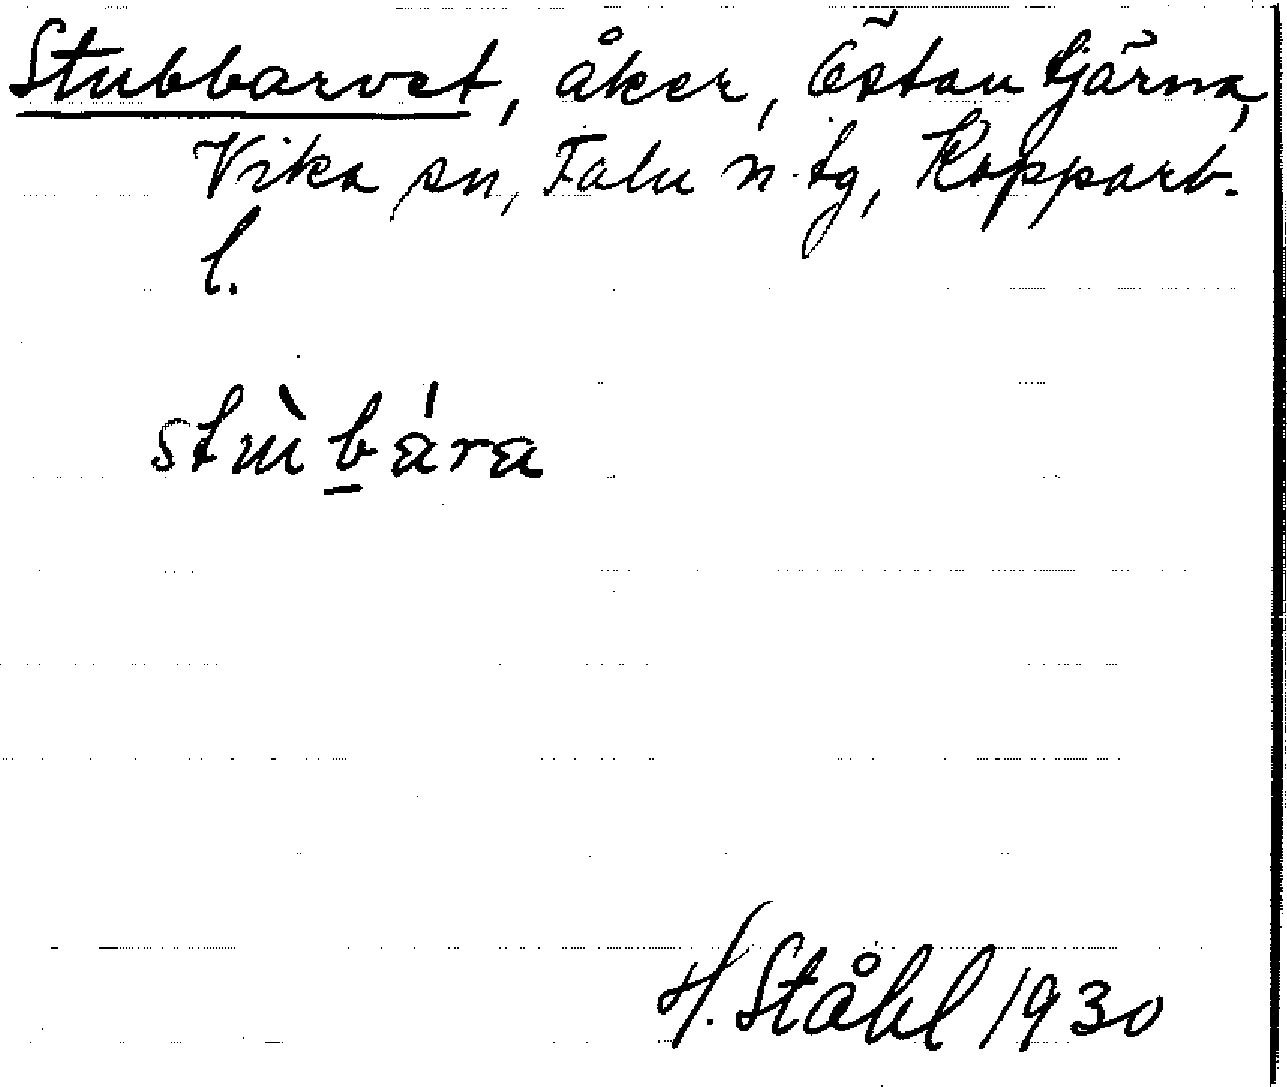 Stubbarvet, åker, Östan tjärna,
Vika sn, Falu n. tg, Kopparb.
l.
H. Ståhl 1930